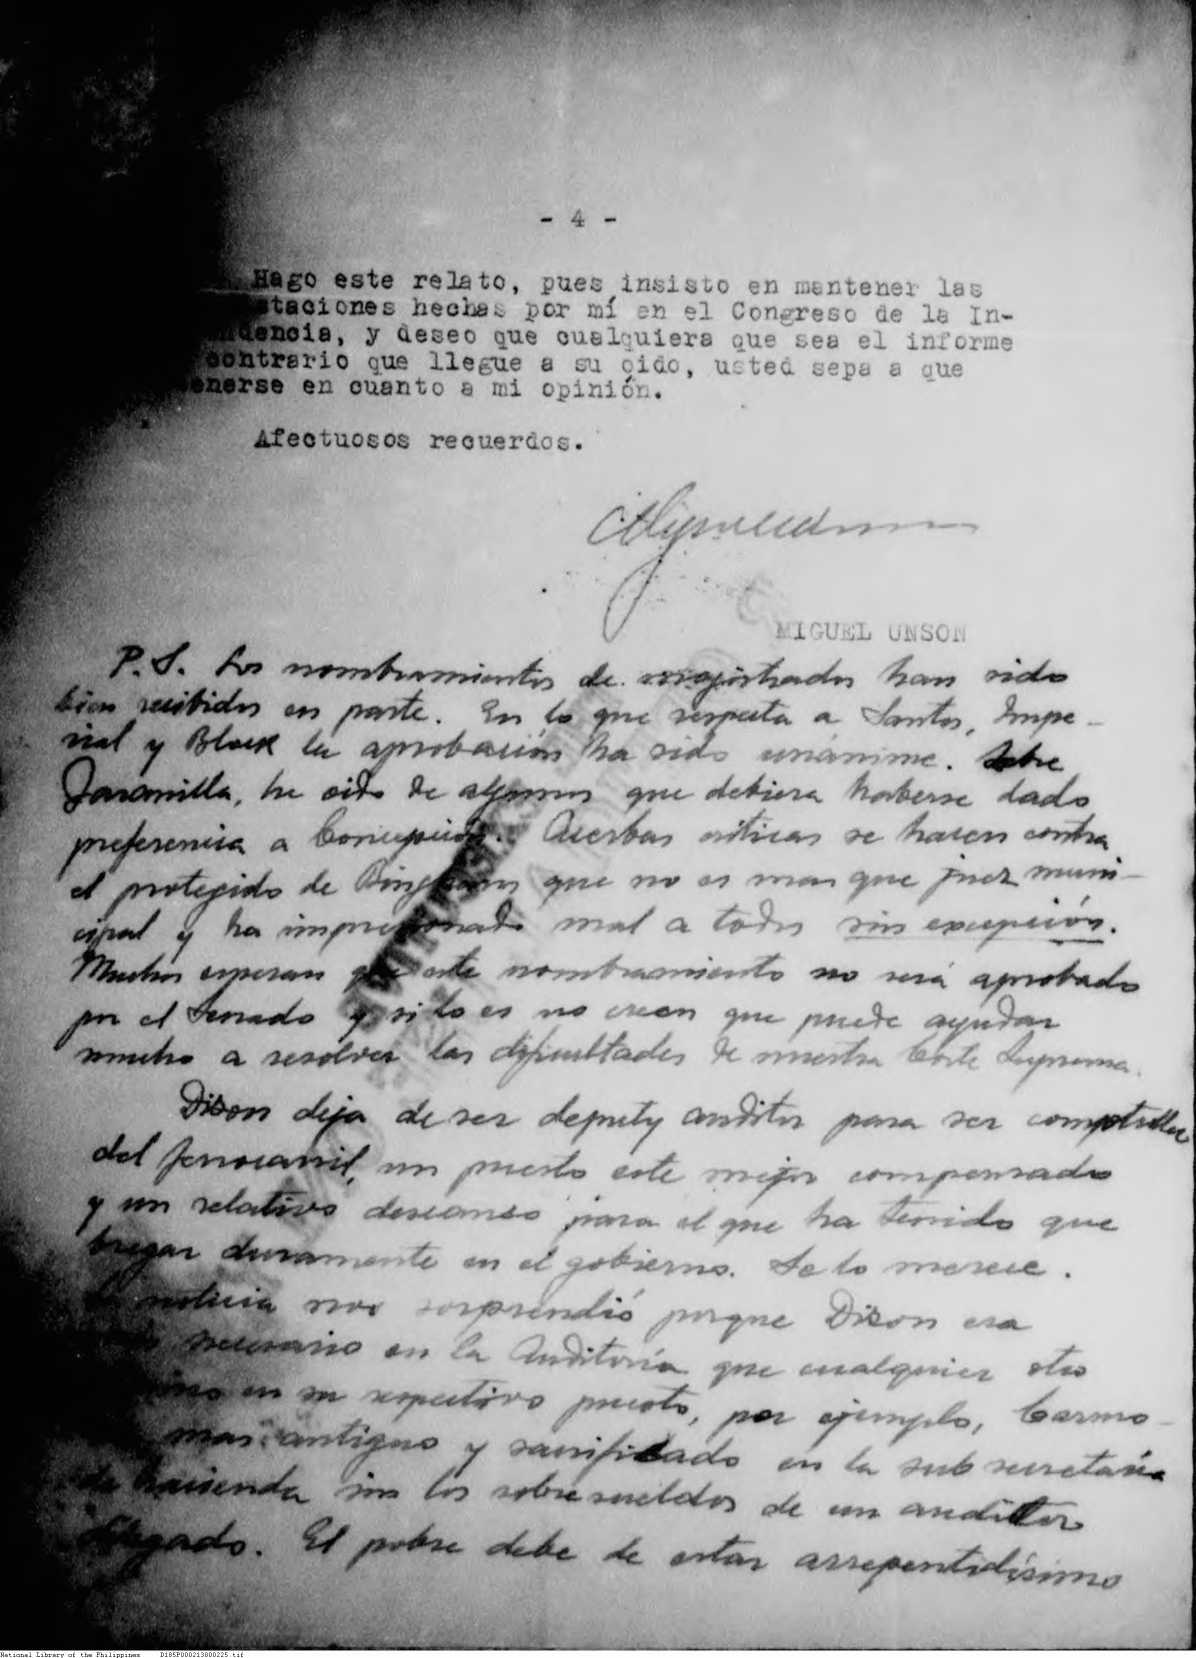 - 4 -
Hago este relato, pues insisto en mantener las
taciones hechas por mí en el Congreso de la In-
dencia, y deseo que cualquiera que sea el informe
contrario que llegue a su oido, usted sepa a que
enerse en cuanto a mi opinión.
Afectuosos recuerdos.
MIGUEL UNSON
P.S. Los nombramientos de magistrados han sido
bien recibidos en parte. En lo que respecta a Santos, Impe-
rial y Block la aprobación ha sido unánime. Sobre
Jaranilla, he oido de algunos que debiera haberse dado
preferencia a Concepción. Acerbas críticas se hacen contra
el protegido de que no es mas que juez muni-
cipal y ha impresionado mal a todos sin excepción.
Muchos esperan que este nombramiento no será aprobado
por el Senado y si lo es no creen que puede ayudar
mucho a resolver las dificultades de nuestra Corte Suprema.
Dizon deja de ser deputy auditor para ser comptroller
del ferrocarril, un puesto este mejor compensado
y un relativo descanso para el que ha tenido que
bregar duramente en el gobierno. Se lo merece.
noticia nos sorprendió porque Dizon era
necesario en la Auditoría que cualquier otro
en su respectivo puesto, por ejemplo, Carmo-
mas antiguo y sacrificado en la sub secretaria
de hacienda sin los sobresueldos de un auditor
delegado. El pobre debe de estar arrepentidísimo
National Library of the Philippines D185P000213800225.tif